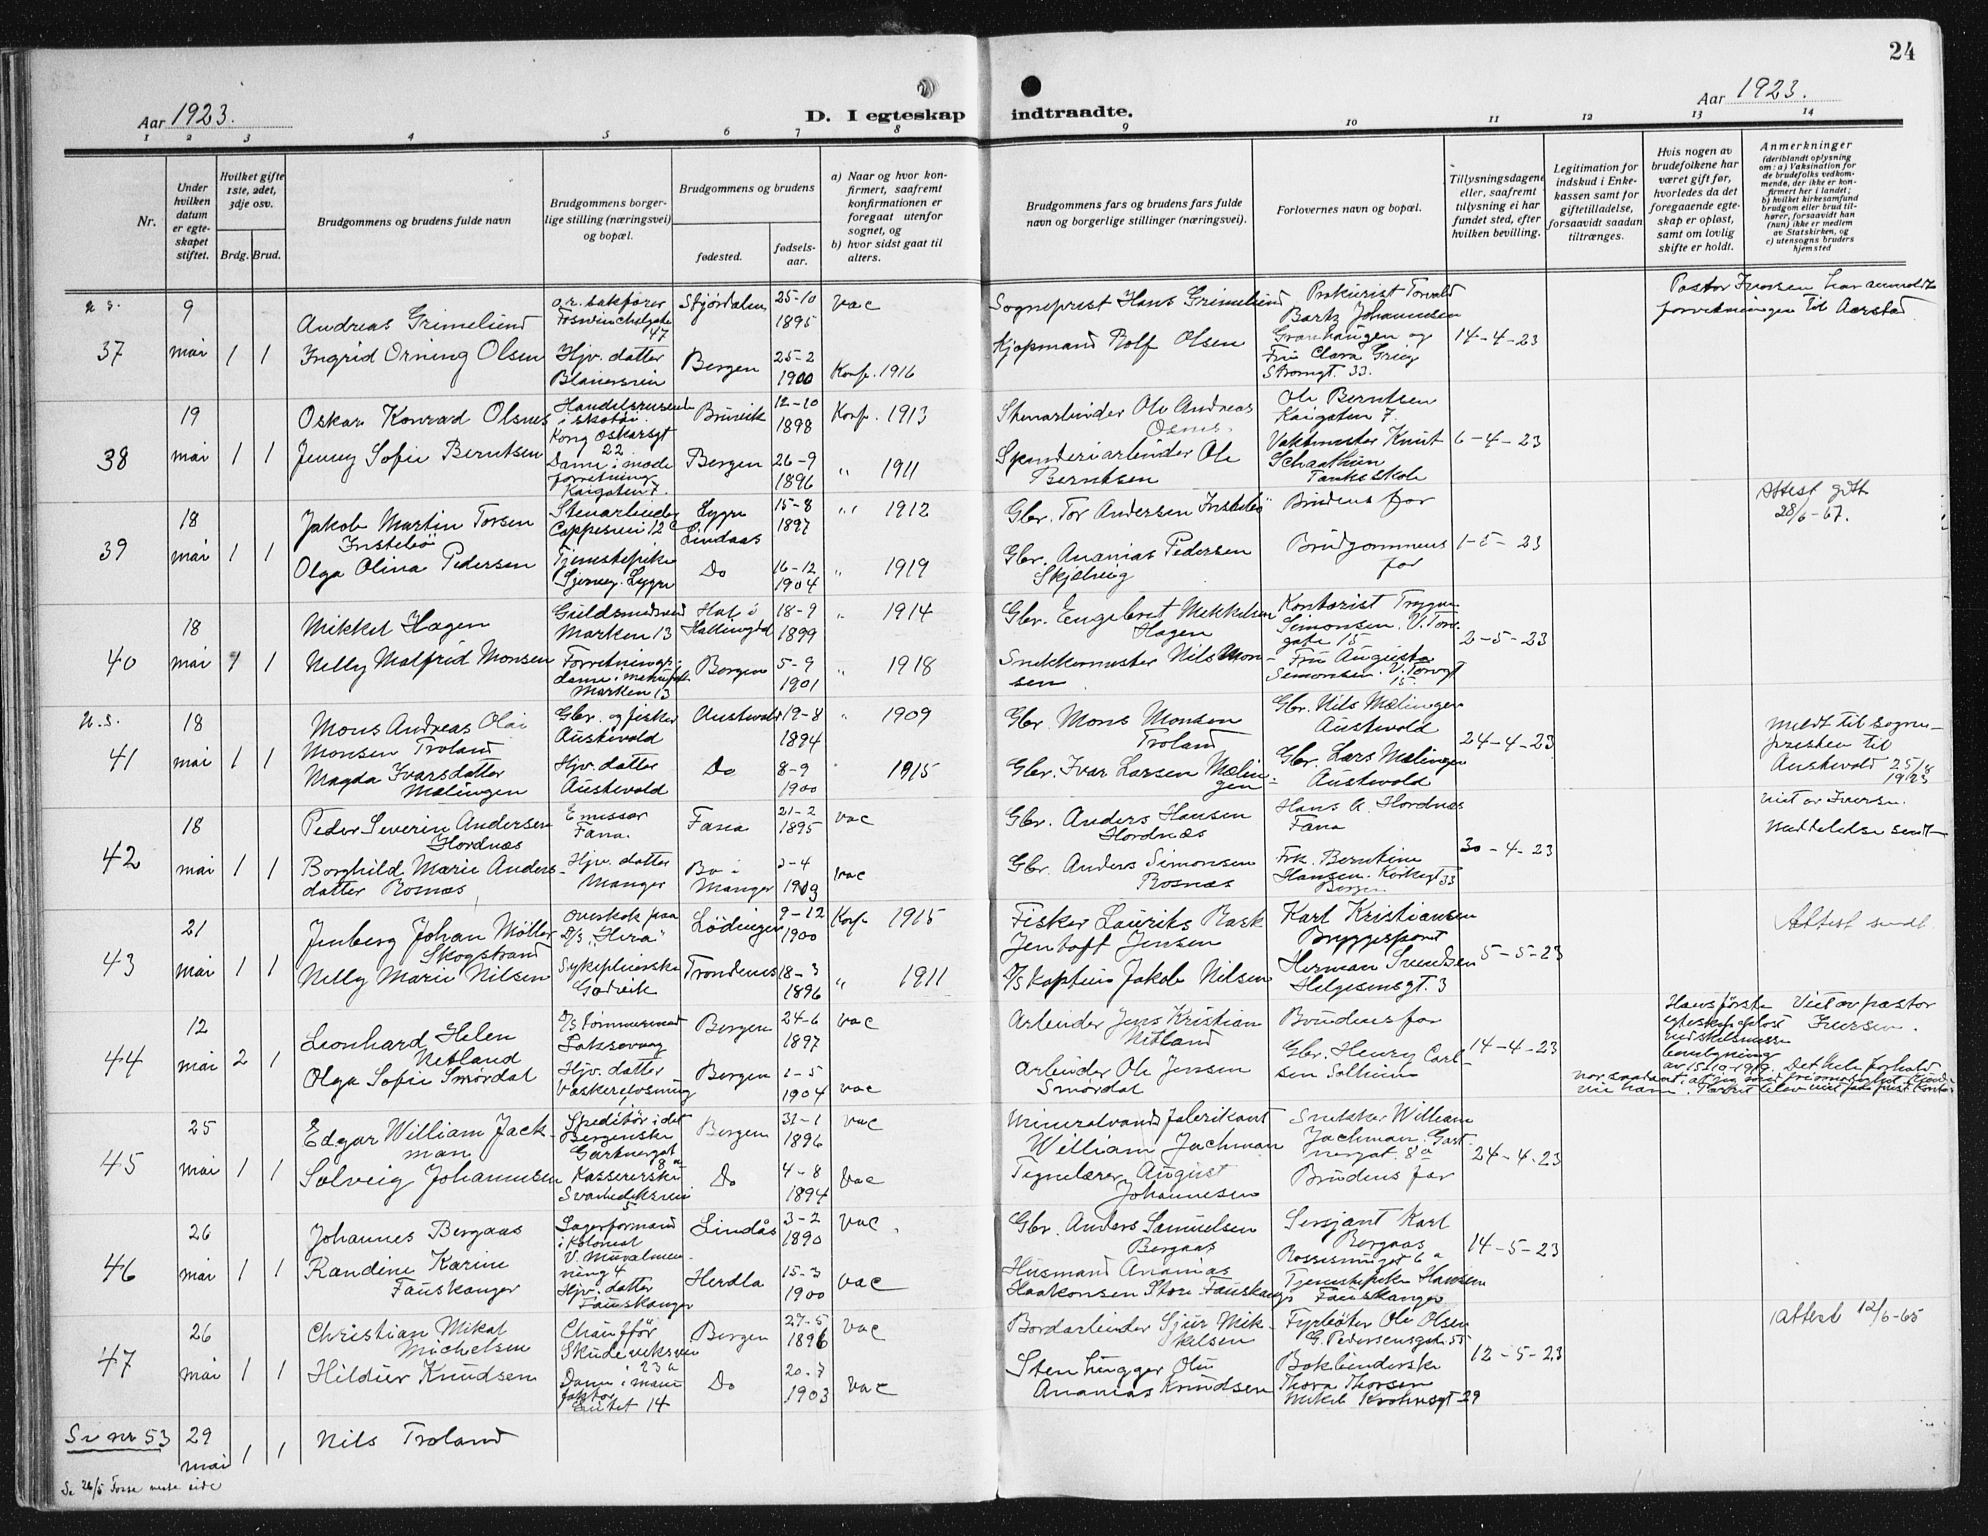 24
Aar 1923.
D. I egteskap indtraadte.
Aar 1923.
1 2 3 4 5 6 7 8 9 10 11 12 13 14
Nr.
Under hvilken datum er egteskapet stiftet.
Hvilket gifte 1ste, 2det, 3dje osv.
Brdg. Brud.
Brudgommens og brudens fulde navn
Brudgommens borgerlige stilling (næringsvei) og bopæl.
Brudgommens og brudens
fødested.
fødselsaar.
a) Naar og hvor konfirmert, saafremt konfirmationen er foregaat utenfor sognet, og
b) hvor sidst gaat til alters.
Brudgommens fars og brudens fars fulde navn og borgerlige stillinger (næringsvei).
Forlovernes navn og bopæl.
Tillysningsdagene eller, saafremt tilysning ei har fundet sted, efter hvilken bevilling.
Legitimation for indskud i Enkekassen samt for giftetilladelse, forsaavidt saadan tiltrænges.
Hvis nogen av brudefolkene har været gift før, hvorledes da det foregaaende egteskap er opløst, samt om lovlig skifte er holdt.
Anmerkninger
(deriblandt oplysning om: a) Vaksination for de brudefolks vedkommende, der ikke er konfirmert her i landet; b) hvilket kirkesamfund brudgom eller brud tilhører, forsaavidt han (hun) ikke er medlem av Statskirken, og c) utensogns bruders hjemsted
u. s.
37
9 mai 1 1
Andreas Grimelund
o.r. sakfører
47
Stjørdalen 25-10 1895 vac
Sogneprest Hans Grimelund
Prokurist Torvald Bartz Johannesen
Ingrid Orning Olsen
Hjv. datter
Bergen 25-2 1900 Konf. 1916
Kjøpmand Rolf Olsen
Granhaugen og Fru Clara Grieg Strømgt. 33.
14-4-23
Pastor Iversen har anmeldt
forretningen til Aarstad.
38
19 mai 1 1
Oskar Konrad Olsnes
Handelsreisende i skotøi
Kong Oskarsgt 22
Bruvik 12-10 1898 Konf. 1913
Stenarbeider Ole Andreas Osnes.
Ole Berntsen Kaigaten 7.
Jenny Sofie Berntsen
Dame i mode forretning Kaigaten 7.
Bergen 26-9 1896 " 1911
Spenderiarbeider Ole Berntsen
Vaktmester Knut Schaathun Tanks skole
6-4-23
39
18 mai 1 1
Jakob Martin Torsen Instebø
Stenarbeider Cappesvei 12c
Lygre Lindaas 15-8 1897 " 1912
Gbr. Tor Andersen Instebø
Brudens far
Olga Olina Pedersen
Tjenestepike
Do 16-12 1904 " 1919
Gbr. Ananias Pedersen
Brudgommens far
1-5-23
Attest gitt 28/6-67.
40
18 mai 1 1
Mikkel Hagen
Guldsmedsvend Marken 13
Hol i Hallingdal 18-9 1899 " 1914
Gbr. Engebret Mekkelsen Hagen
Kontorist Trygve Simonsen. V. Torvgate 15
Nelly Malfrid Monsen
Forretningsdame i
Marken 13
Bergen 5-9 1901 " 1918
Snekkermester Nils Monsen
Fru Augusta Simonsen. V. Torvgt 15
2-5-23
u. s.
41
18 mai 1 1
Mons Andreas Olai Monsen Troland
Gbr. og fisker Austevold
Austevold 19-8 1894 " 1909
Gbr Mons Monsen Troland
Gbr. Nils Mælingen Austevold
Magda Ivarsdatter Mælingen
Hjv. datter Austevold
Do 8-9 1900 " 1915
Gbr. Ivar Larsen Mælingen
Gbr. Lars Mælingen Austevold
24-4-23
meldt til sogne-
presten til
Austevold 25/8 1923
42
18 mai 1 1
Peder Severin Andersen Hordnæs
Emissær Fana.
Fana 21-2 1895 vac
Gbr. Anders Hansen Hordnæs
Hans A. Hordnæs Fana
Borghild Marie Andersdatter Rosnæs
Hjv. datter Manger
Bø i Manger 2-4 1903 vac
Gbr. Anders Simonsen Rosnæs
Frk. Berntine Hansen. Kirkegt 33 Bergen
30-4-23
viet av Iversen.
Meddelelse sendt
43
21 mai 1 1
Jenberg Johan Möller Skogstrand
Overkok paa D/S "Hera"
Lödingen 9-12 1900 Konf. 1915
Fisker Lauriks Rask Jentoft Jensen
Karl Kristiansen Bryggesporet
Nelly Marie Nilsen
Sykepleierske Gadvik
Trondenes 18-3 1896 " 1911
D/S Kaptein Jakob Nilsen
Herman Svendsen Helgesensgt. 3
5-5-23
Attest sendt.
44
12 mai 2 1
Leonhard Helen Netland
D/S tømmermand Laksevaag
Bergen 24-6 1897 vac
Arbeider Jens Kristian Netland
Brudens far
Olga Sofie Smördal
Hjv. datter
Bergen 1-5 1904 vac
Arbeider Ole Jensen Smördal
Gbr. Henry Carlsen Solheim
14-4-23
Hans første
egteskap opløst
bevilgning
av 15/10-1919.
Viet av pastor Iversen.
Det hele forhold
45
25 mai 1 1
Edgar William Jackman
Speditør i det Bergenske Gartnergt 8a
Bergen 31-1 1896 vac
Mineralvandsfabrikant William Jachman
Snekker William Jachman. Gartnergt. 8a
Solveig Johannesen
Kassererske Svaneviksvei 5
Do 4-8 1894 vac
Tegnelærer August Johannesen
Brudens far
24-4-23
46
26 mai 1 1
Johannes Bergaas
Lagerformand i Kolonial
V. Muralmenning 4
Lindås 3-2 1890 vac.
Gbr. Anders Samuelsen Bergaas
Sersjant Karl Bergaas
Randine Karine Fauskanger
Hjv. datter Fauskanger
Herdla 15-3 1900 vac
Husmand Ananias Haakonsen Store Fauskanger
Tjenestepike Hansine Fauskanger
14-5-23
47
26 mai 1 1
Christian Mikal Michelsen
Chauffør Skudeviksvei 23a
Bergen 27-5 1896 vac
Bordarbeider Sjur Mikkelsen
Fyrbøter Ole Olsen G. Pedersensgate 55
Hildur Knudsen
Dame i manufaktur
Do 20-7 1903 vac
Stenhugger Ole Ananias Knudsen
Bokbinderske Thora Thorsen Mikal Krohnsgt 29
12-5-23
Attest 12/6-65
Se nr 53
29 mai 1 1
Nils Troland
Se 26/5 Fosse neste side